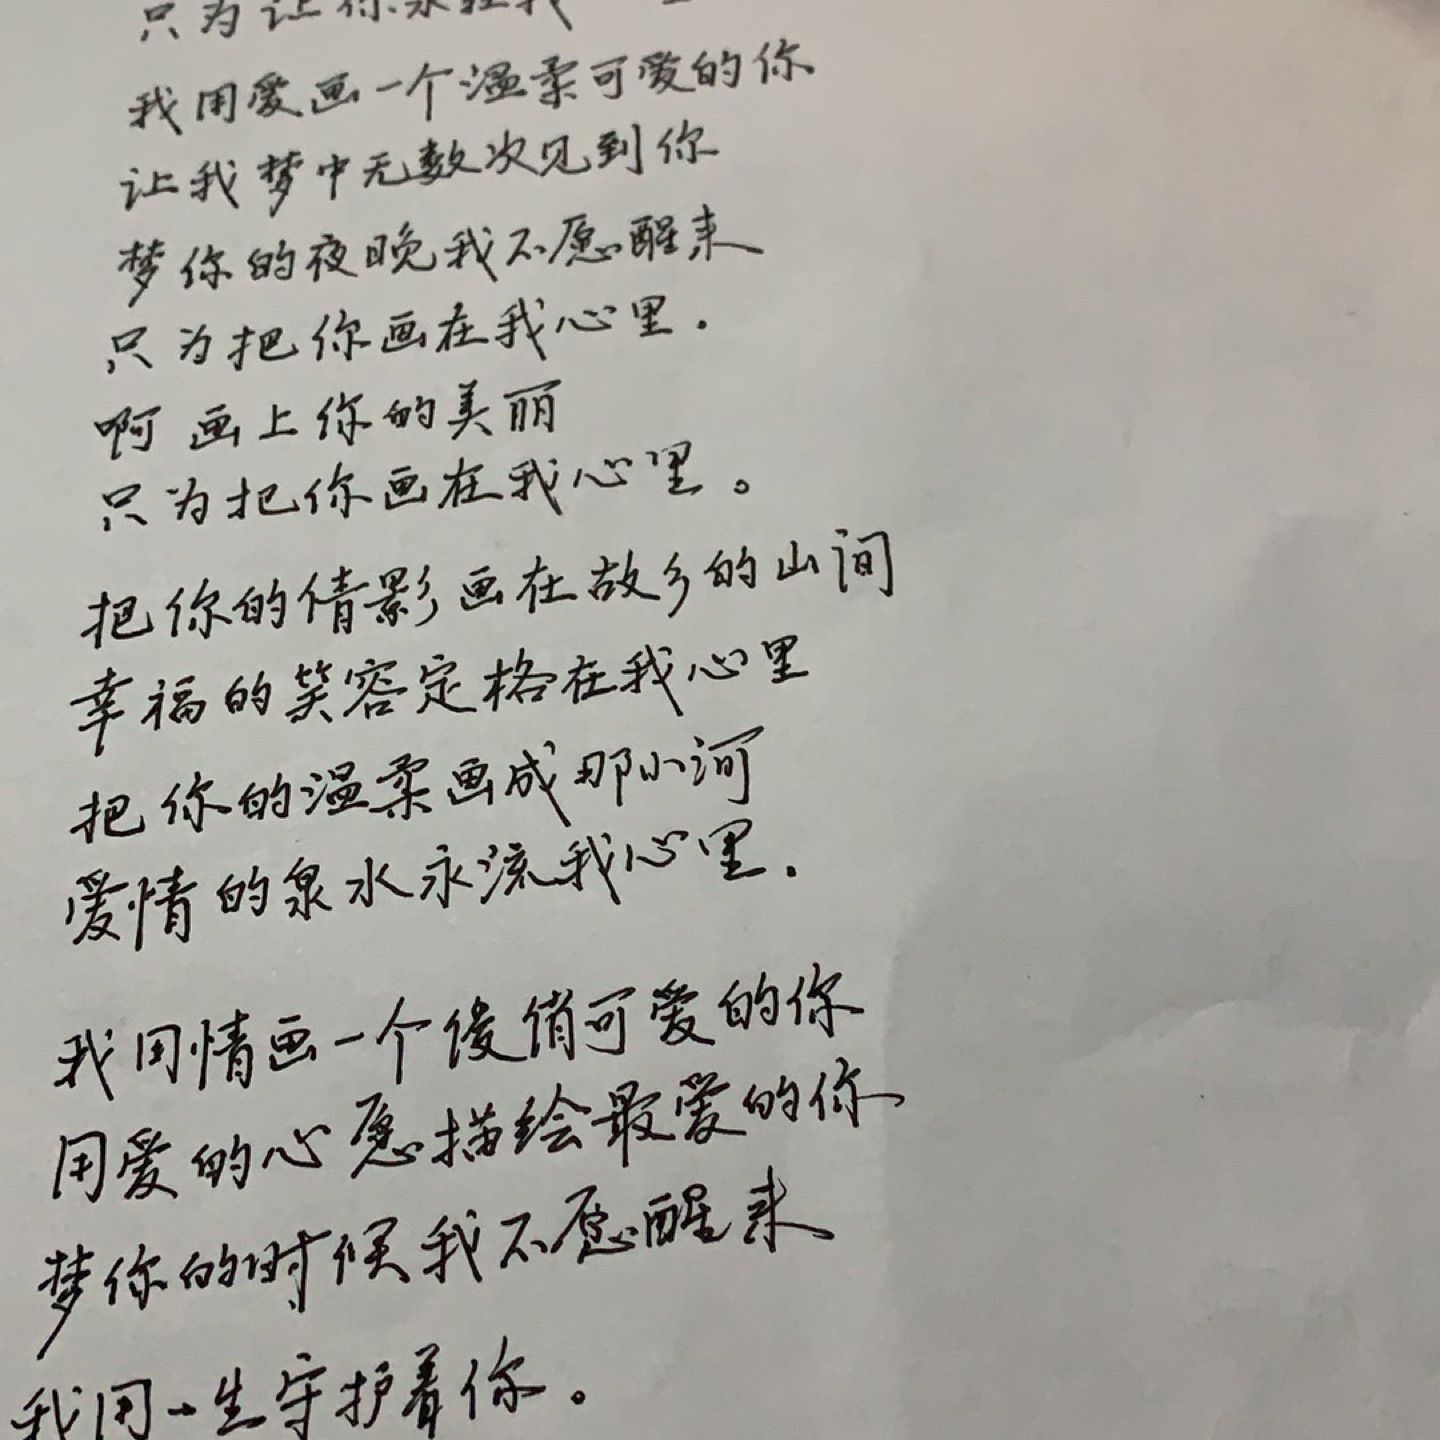 只为让你永驻我心里
我用爱画一个温柔可爱的你
让我梦中无数次见到你
梦你的夜晚我不愿醒来
只为把你画在我心里.
啊 画上你的美丽
只为把你画在我心里。
把你的倩影画在故乡的山间
幸福的笑容定格在我心里
把你的温柔画成那小河
爱情的泉水永流我心里.
我用情画一个俊俏可爱的你
用爱的心愿描绘最爱的你
梦你的时候我不愿醒来
我用一生守护着你。